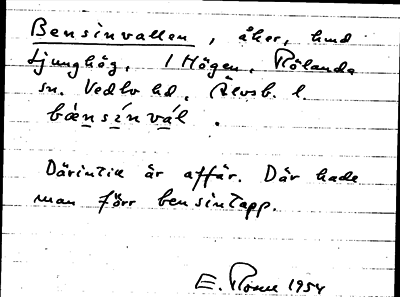 Bensinvallen, åker, hmd
Ljunghög, 1 Högen, Rölanda
sn. Vedbo hd, Älvsb. l.
bænsínvál.
Därintill är affär. Där hade
man förr bensintapp.
E. 1954